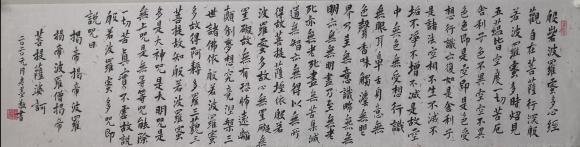 般若波羅蜜多心經
觀自在菩薩行深般
若波羅蜜多時照見
五蘊皆空度一切苦厄
舍利子色不異空空不異
色色即是空空即是色受
想行識亦復如是舍利子
是諸法空相不生不滅不
垢不淨不增不減是故空
中無色無受想行識
無眼耳鼻舌身意無
色聲香味觸法無眼
界乃至無意識界無無
明亦無無明盡乃至無老
死亦無老死盡無苦集滅
道無智亦無得以無所
得故菩提薩埵依般若
波羅蜜多故心無罣礙無
罣礙故無有恐怖遠離
顛倒夢想究竟涅槃三
世諸佛依般若波羅蜜
多故得阿耨多羅三藐三
菩提故知般若波羅蜜
多是大神咒是大明咒是
無上咒是無等等咒能除
一切苦真實不虛故說
般若波羅蜜多咒即
說咒曰
揭帝揭帝波羅
揭帝波羅僧揭帝
菩提薩婆訶